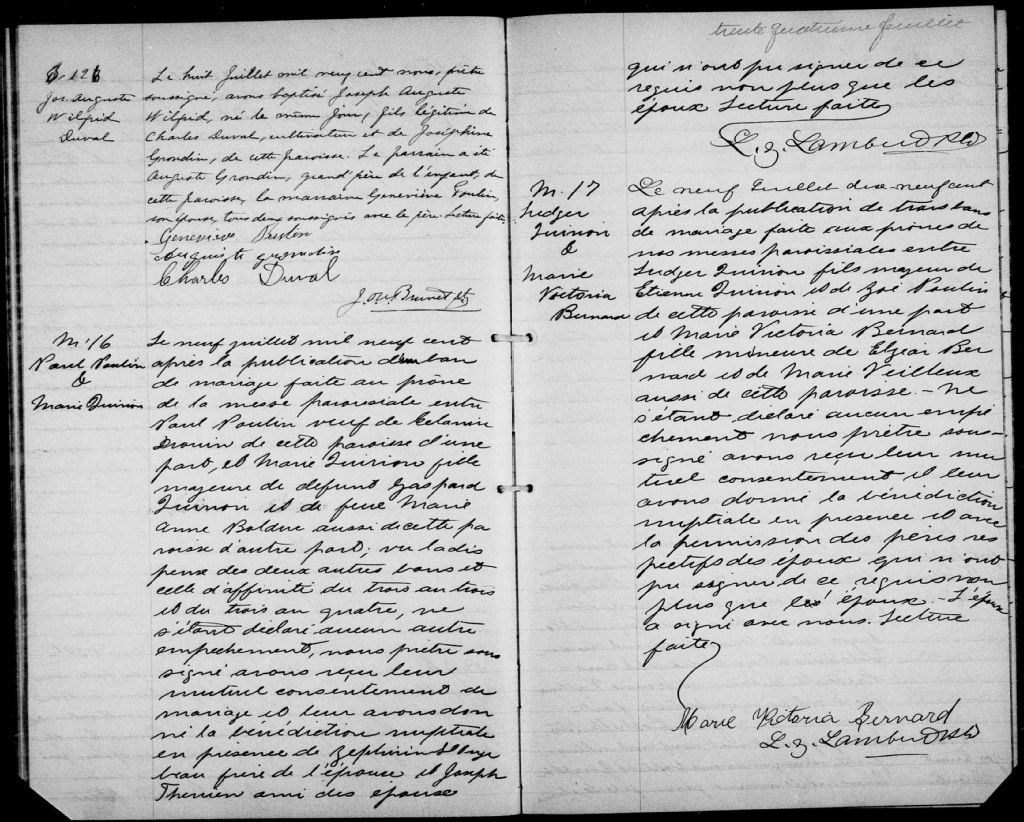 B 126
Jos. Auguste
Wilfrid
Duval
Le huit Juillet mil neuf cent nous, prêtre
soussigné, avons baptisé Joseph Auguste
Wilfrid, né le même jour, fils légitime de
Charles Duval, cultivateur et de Joséphine
Grondin, de cette paroisse. Le parrain a été
Auguste Grondin, grand'père de l'enfant, de
cette paroisse, la marraine Geneviève Poulin,
son épouse, tous deux soussignés avec le père. Lecture faite.
Charles Duval
Jos. Brunet ptre
M. 16
Paul Poulin
&
Marie Quirion
Le neuf juillet mil neuf cent
après la publication d'un ban
de mariage faite au prône
de la messe paroissiale entre
Paul Poulin veuf de
Drouin de cette paroisse d'une
part, et Marie Quirion fille
majeure de défunt Gaspard
Quirion et de feue Marie
Anne Bolduc aussi de cette pa
roisse d'autre part; vu la dis
pense des deux autres bans et
celle d'affinité du trois au trois
et du trois au quatre, ne
s'étant déclaré aucun autre
empêchement, nous prêtre sous
signé avons reçu leur
mutuel consentement de
mariage et leur avons don
né la bénédiction nuptiale
en présence de Zéphirin
beau frère de l'épouse et Joseph
Therrien ami des époux
trente quatrième feuillet
qui n'ont pu signer de ce
requis non plus que les
époux Lecture faite
L. Z. Lambert Ptre
M. 17
Ludger
Quirion
&
Marie
Victoria
Bernard
Le neuf Juillet dix neuf cent
après la publication de trois bans
de mariage faite aux prônes de
nos messes paroissiales entre
Ludger Quirion fils majeur de
Etienne Quirion et de Zoé Poulin
de cette paroisse d'une part
et Marie Victoria Bernard
fille mineure de Elzéar Ber
nard et de Marie Veilleux
aussi de cette paroisse. - Ne
s'étant déclaré aucun empê
chement nous prêtre sous-
signé avons reçu leur mu
tuel consentement et leur
avons donné la bénédiction
nuptiale en présence et avec
la permission des pères res
pectifs des époux qui n'ont
pu signer de ce requis non
plus que les époux. - L'épouse
a signé avec nous. Lecture
faite
Marie Victoria Bernard
L. Z. Lambert Ptre